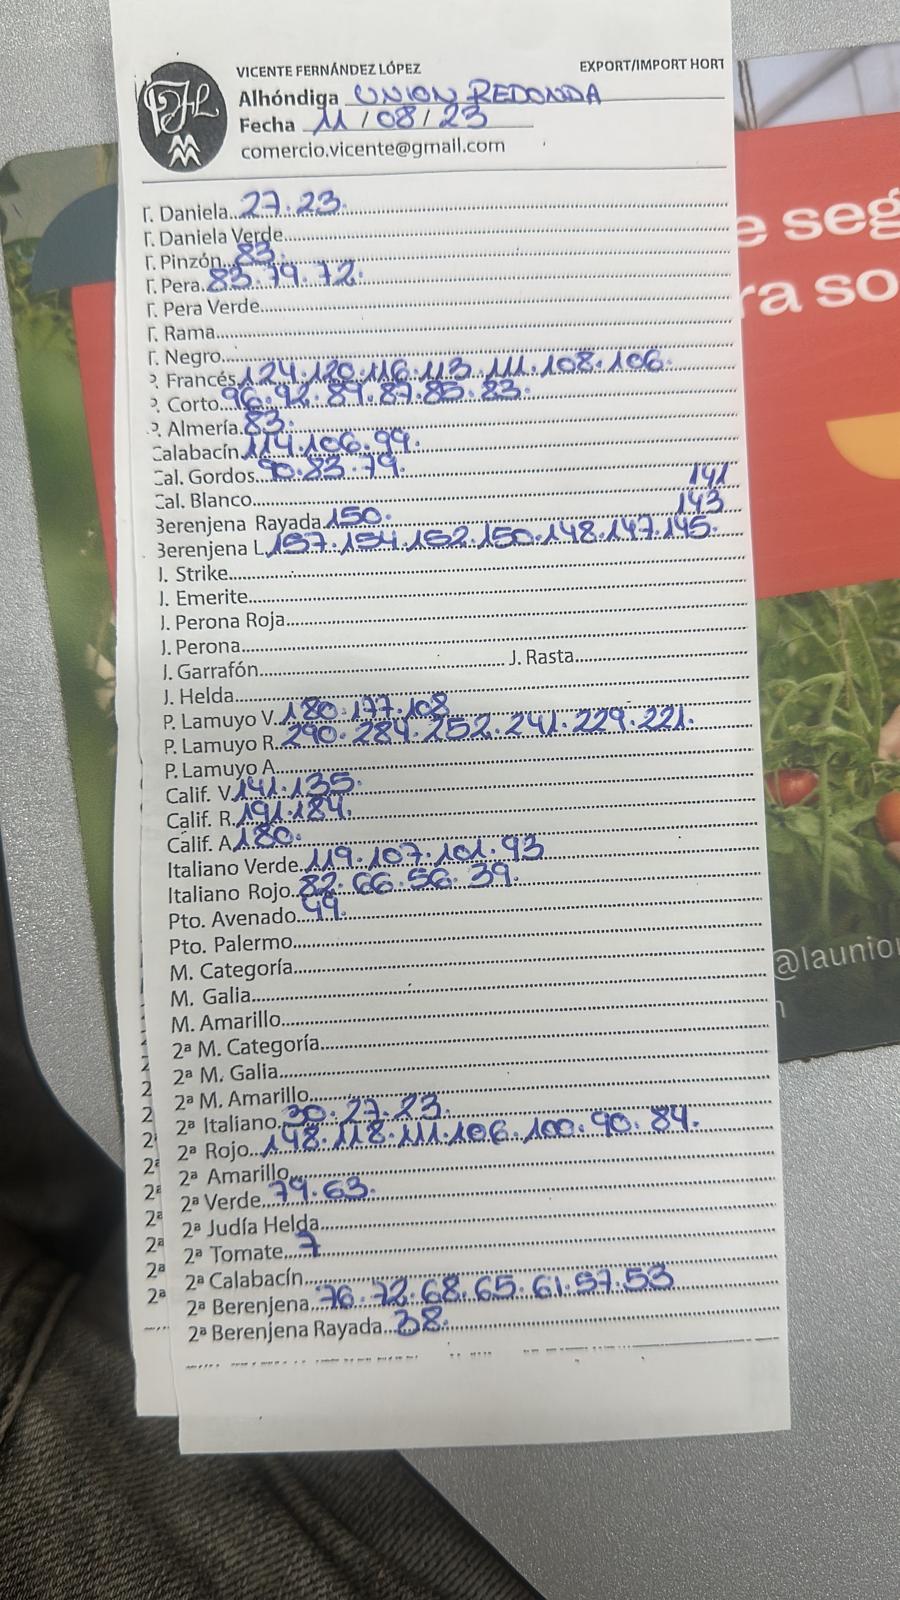 VICENTE FERNÁNDEZ LÓPEZ EXPORT/IMPORT HORT
Alhóndiga UNION REDONDA
Fecha 11/08/23
comercio.vicente@gmail.com
T. Daniela 27.23.
T. Daniela Verde
T. Pinzón 83.
T. Pera 83.79.72.
T. Pera Verde
T. Rama
T. Negro
P. Francés 124.120.116.113.111.108.106.
P. Corto 96.92.89.87.85.83.
P. Almería 83.
Calabacín 114.106.99.
Cal. Gordos 90.83.79.
Cal. Blanco 141
Berenjena Rayada 150. 143
Berenjena L. 157.154.152.150.148.147.145.
J. Strike
J. Emerite
J. Perona Roja
J. Perona
J. Garrafón J. Rasta
J. Helda
P. Lamuyo V. 180.177.108
P. Lamuyo R. 290.284.252.241.229.221.
P. Lamuyo A.
Calif. V. 141.135.
Calif. R. 191.184.
Calif. A. 180.
Italiano Verde 119.107.101.93
Italiano Rojo 82.66.56.39.
Pto. Avenado 49.
Pto. Palermo
M. Categoría
M. Galia
M. Amarillo
2ª M. Categoría
2ª M. Galia
2ª M. Amarillo
2ª Italiano 30.27.23.
2ª Rojo 148.118.111.106.100.90.84.
2ª Amarillo
2ª Verde 79.63.
2ª Judía Helda
2ª Tomate 7
2ª Calabacín
2ª Berenjena 76.72.68.65.61.57.53
2ª Berenjena Rayada 38.
e seg
ra so
@launio